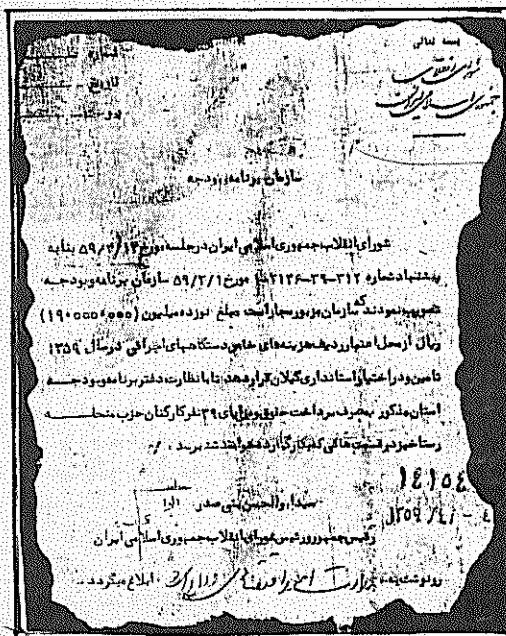 بسمه تعالی
شورای انقلاب
جمهوری اسلامی ایران
شماره
تاریخ
پیوست
سازمان برنامه و بودجه
شورای انقلاب جمهوری اسلامی ایران در جلسه مورخ ۵۹/۳/۱۳ بنا به
پیشنهاد شماره ۳۱۲-۳۹-۲۱۳۶ مورخ ۵۹/۳/۱ سازمان برنامه و بودجه
تصویب نمودند که سازمان مزبور مجاز است مبلغ نوزده میلیون (۱۹۰۰۰۰۰۰۰)
ریال از محل اعتبار ردیف هزینه های خاص دستگاههای اجرائی در سال ۱۳۵۹
تامین و در اختیار استانداری گیلان قرار دهد تا با نظارت دفتر برنامه و بودجه
استان مذکور بمصرف پرداخت حقوق و مزایای ۳۹ نفر کارکنان حزب منحله
رستاخیز در قسمت هائی که بکار گمارده خواهند شد برسد ./
۱۴۱۵۴
۱۳۵۹/۴/
سید ابوالحسن بنی صدر
رئیس جمهور و رئیس شورای انقلاب جمهوری اسلامی ایران
رونوشت به وزارت امور اقتصادی و دارائی ابلاغ میگردد .